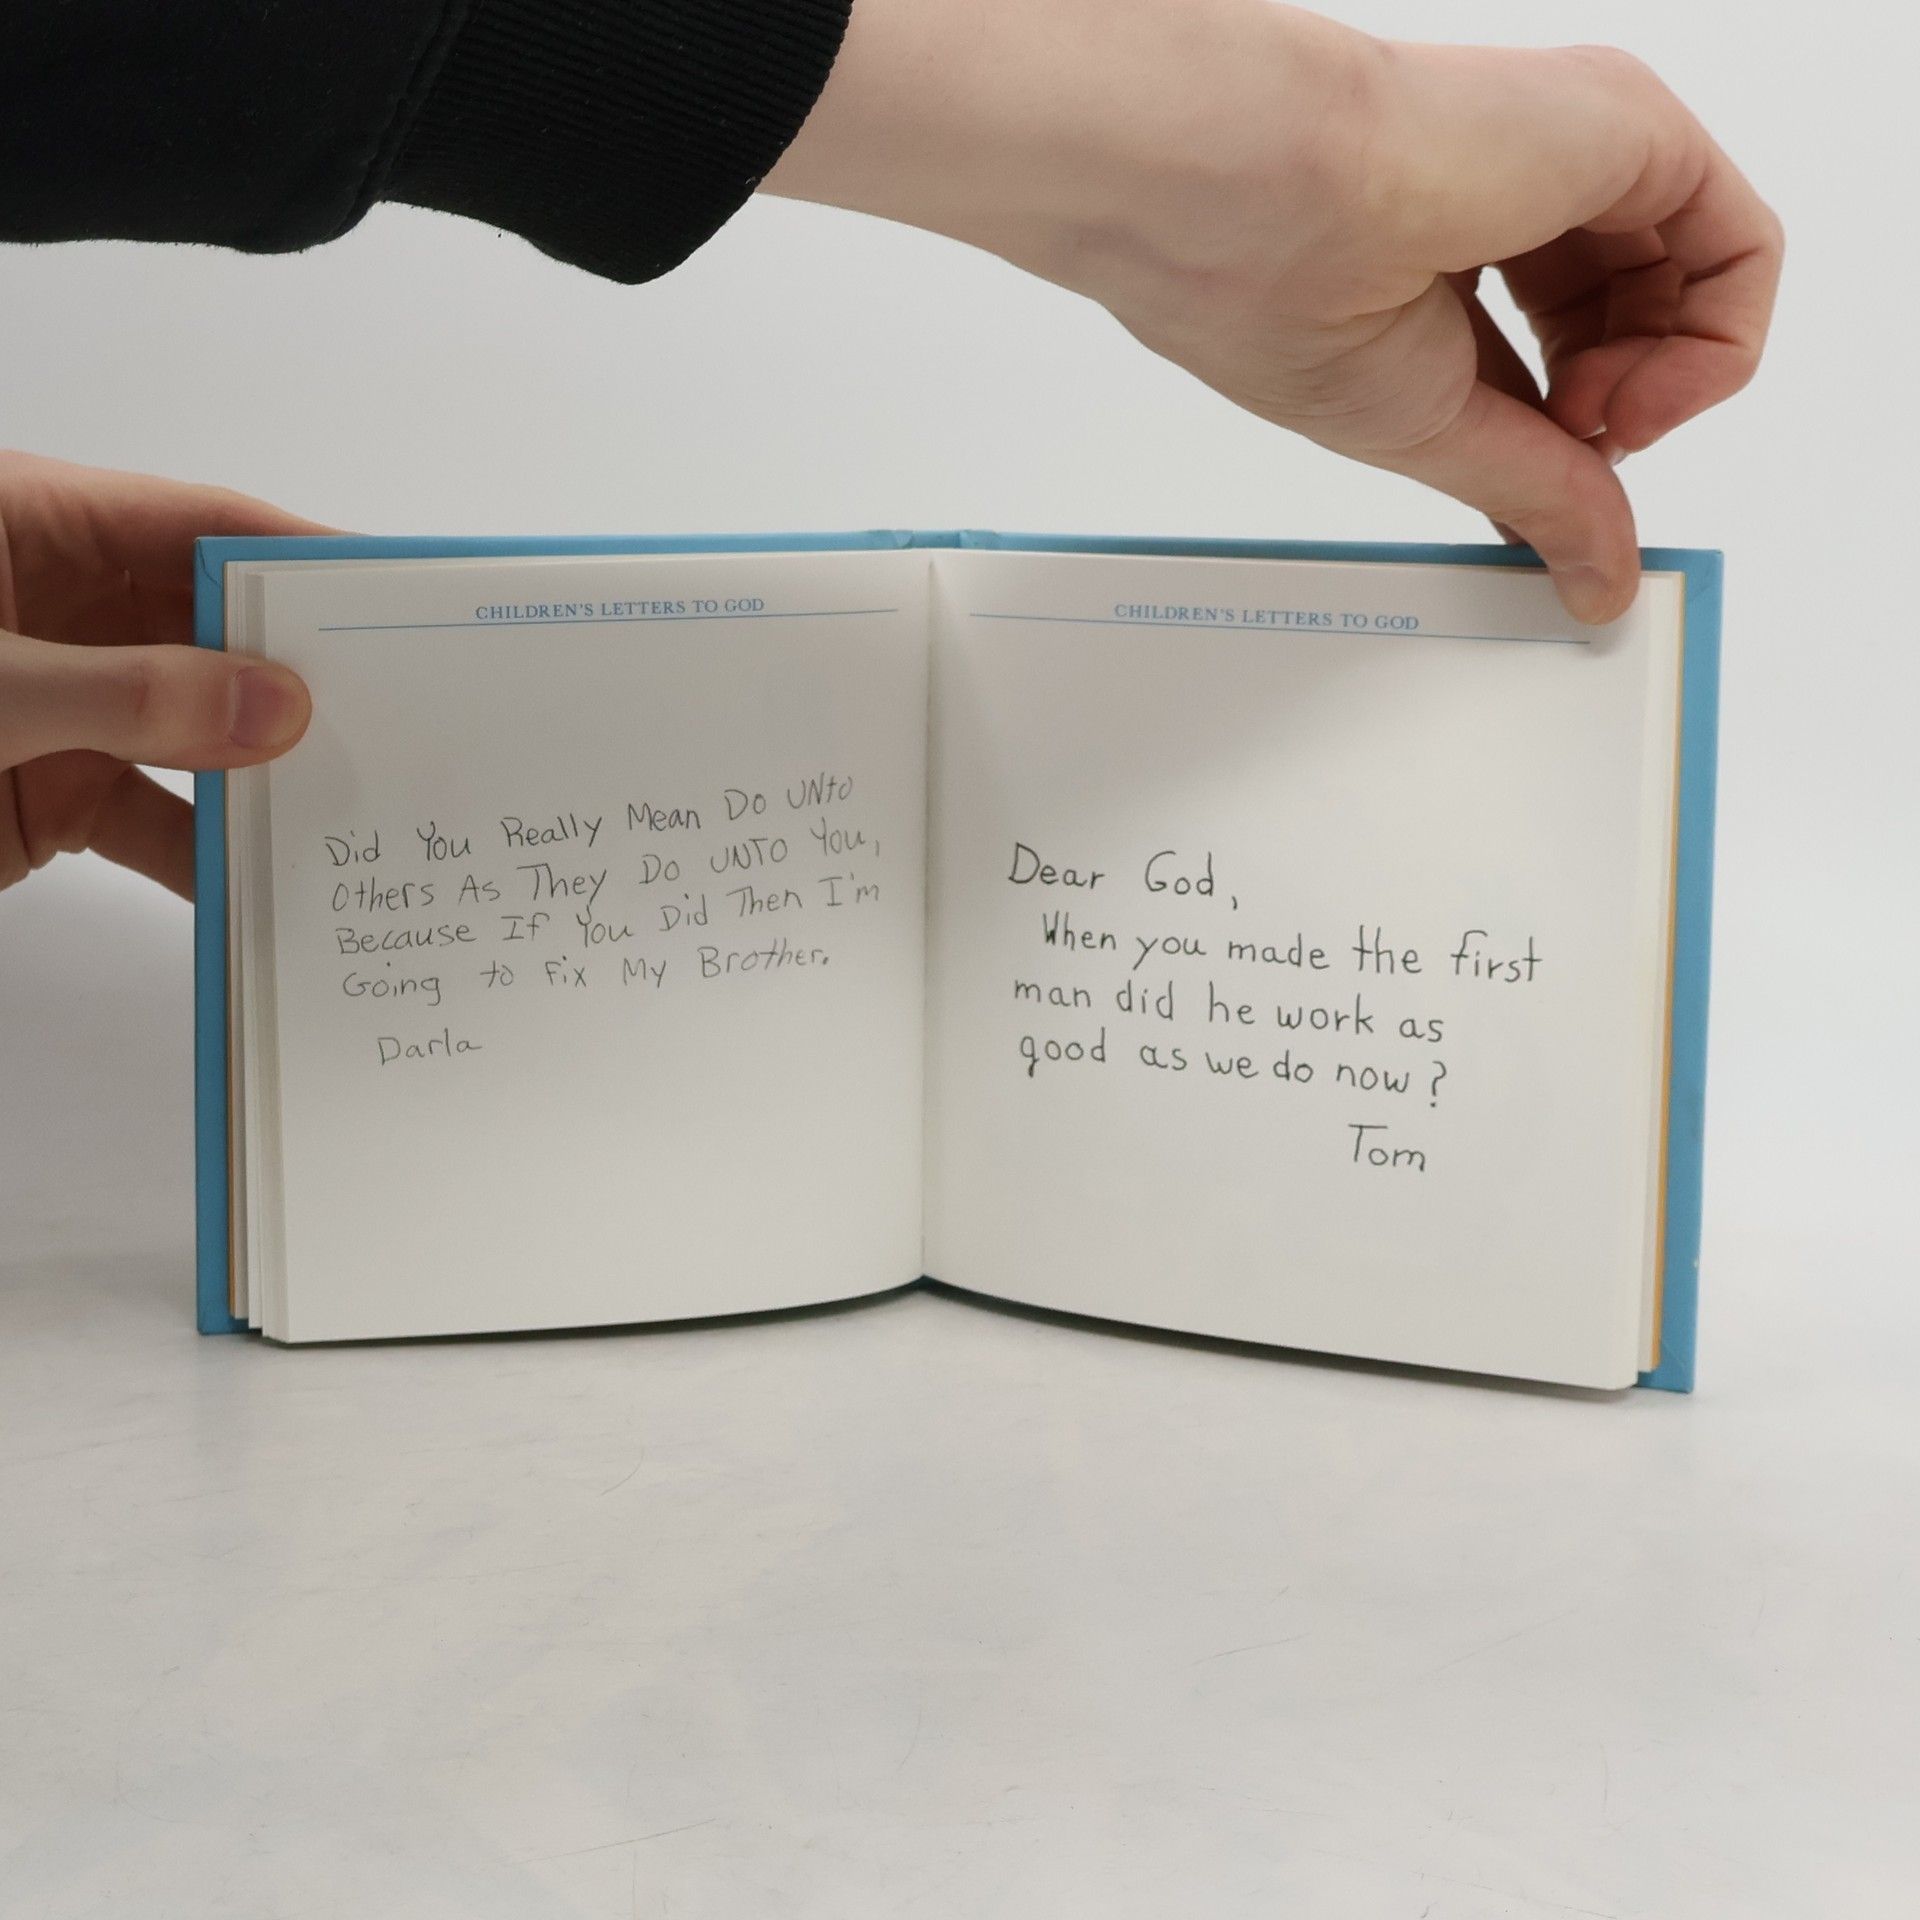 CHILDREN'S LETTERS TO GOD
Did You Really Mean Do UNto
Others As They Do UNTO You,
Because If You Did Then I'm
Going to Fix My Brother.
Darla
CHILDREN'S LETTERS TO GOD
Dear God,
When you made the first
man did he work as
good as we do now?
Tom